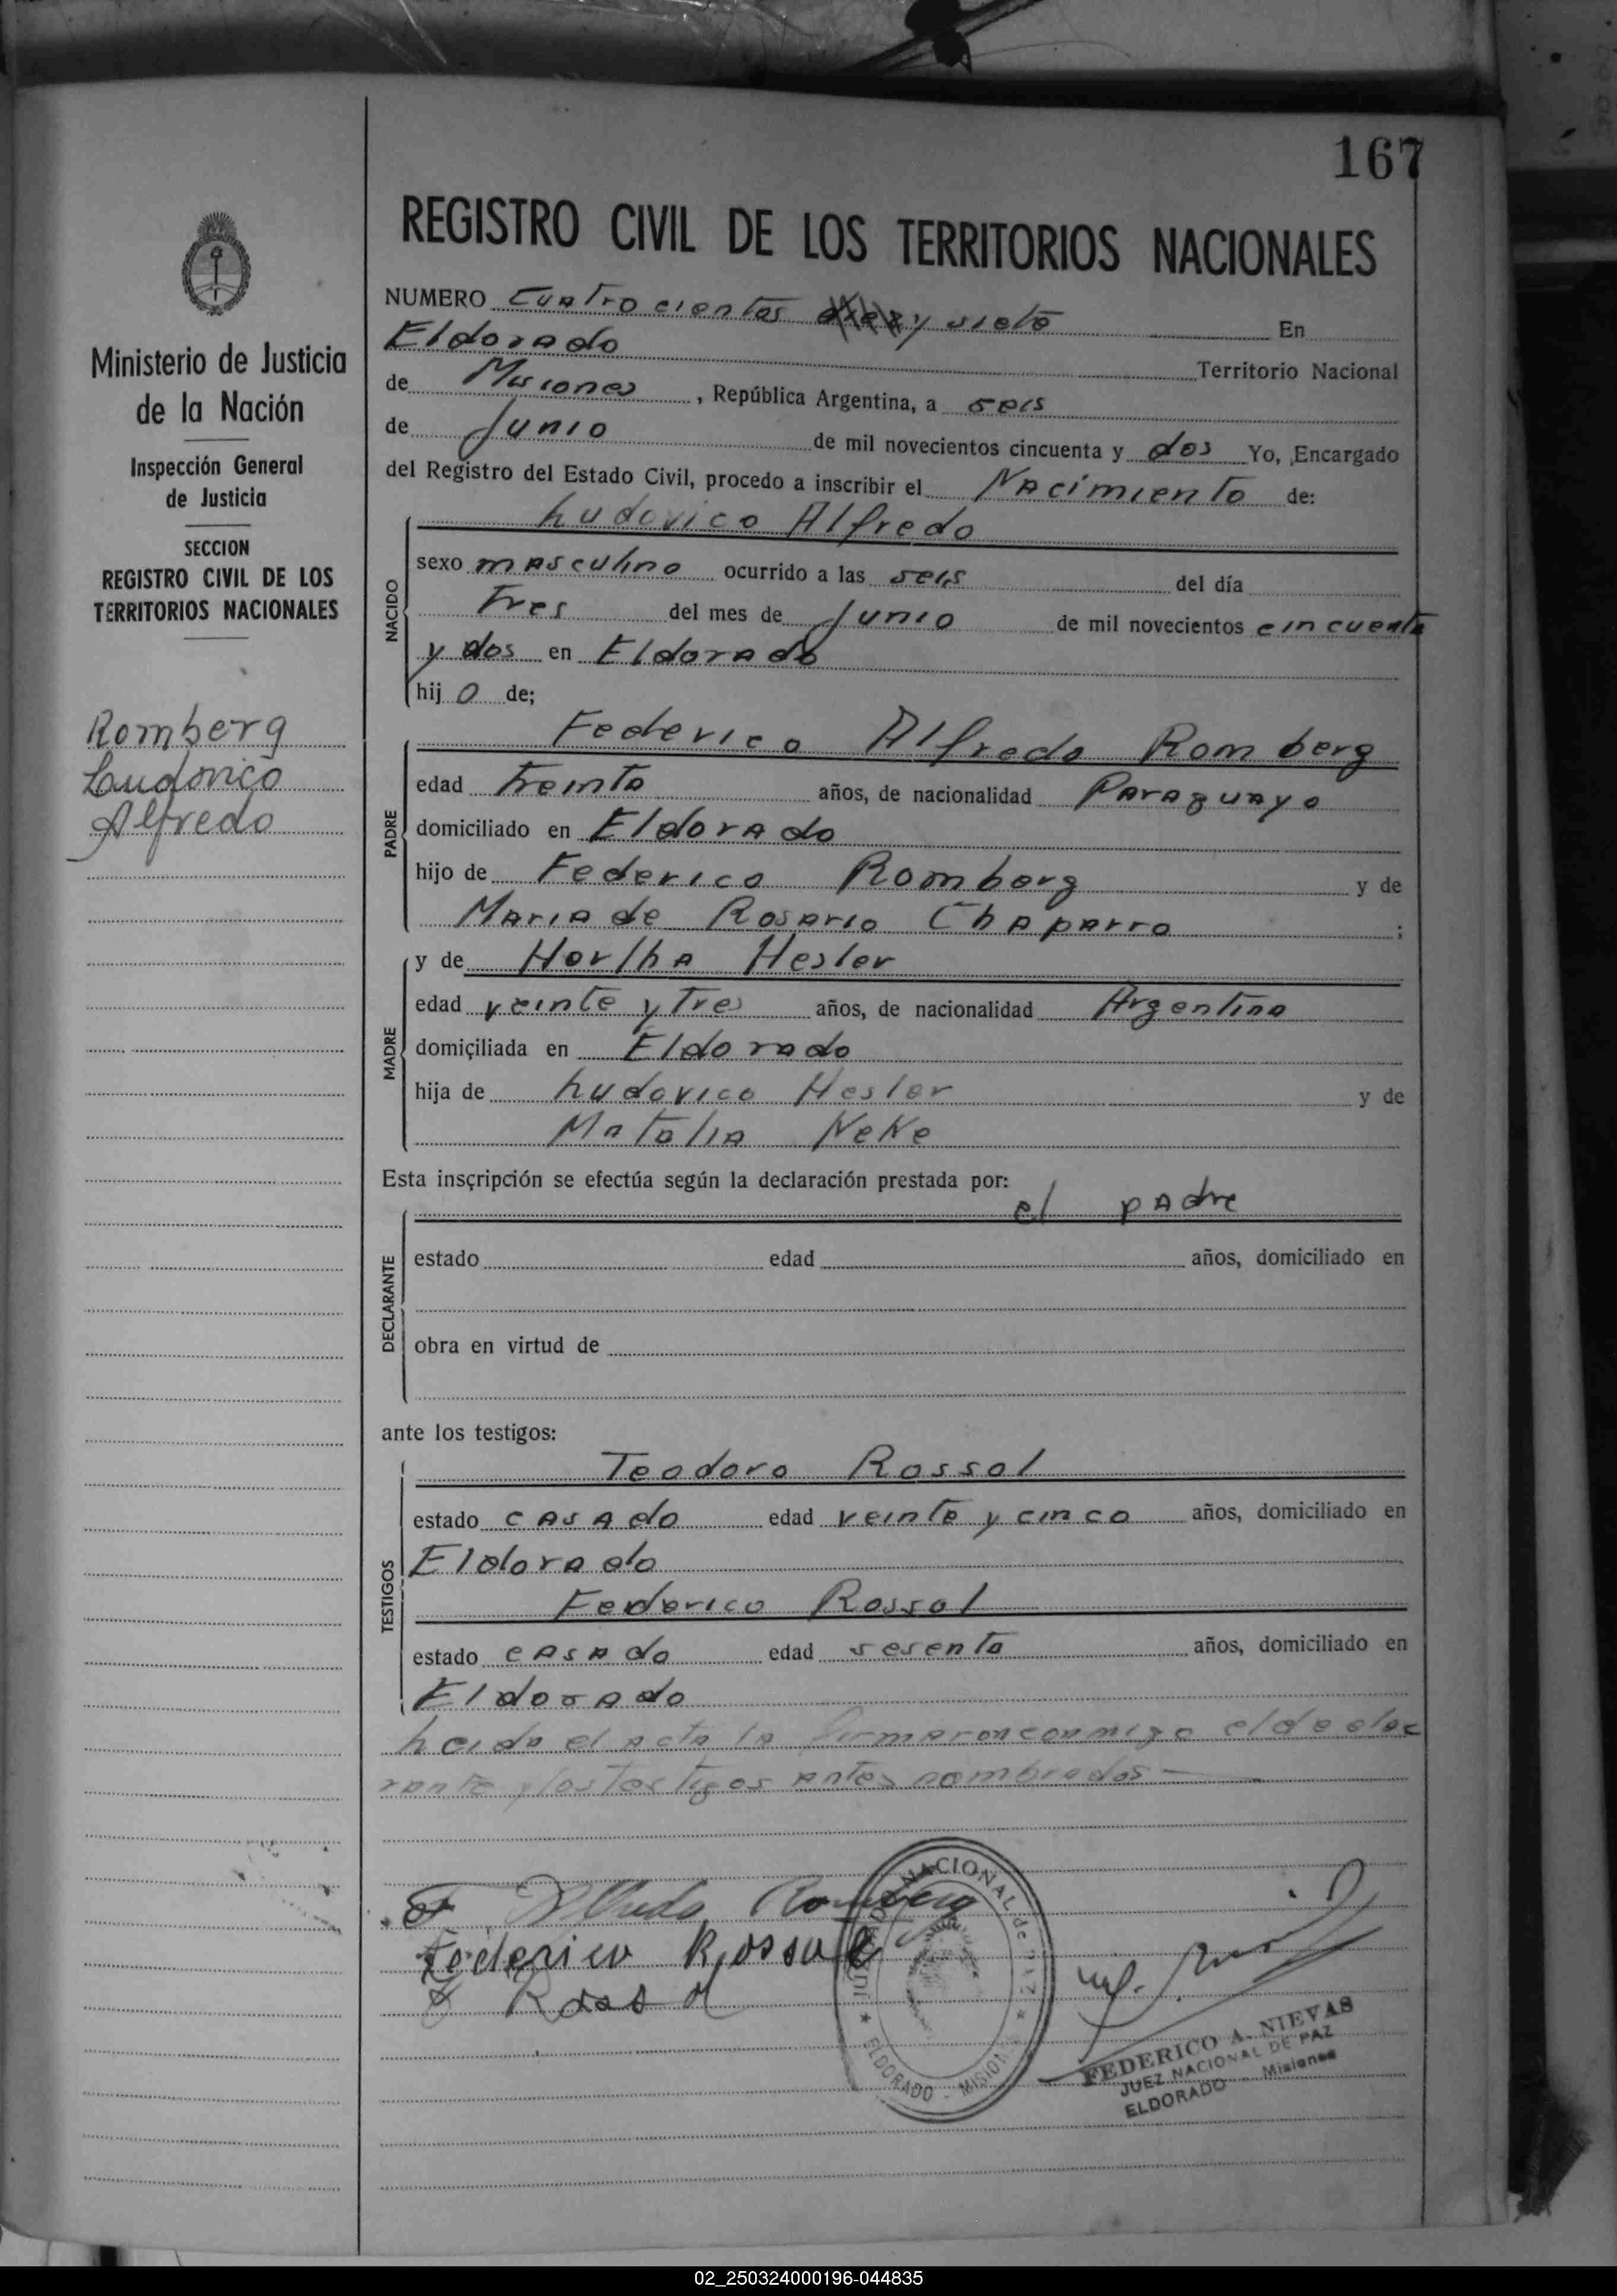 167
REGISTRO CIVIL DE LOS TERRITORIOS NACIONALES
Ministerio de Justicia
de la Nación
Inspección General
de Justicia
SECCION
REGISTRO CIVIL DE LOS
TERRITORIOS NACIONALES
Romberg
Ludovico
Alfredo
NUMERO Cuatro cientos diez y siete En
Eldorado Territorio Nacional
de Misiones, República Argentina, a seis
de Junio de mil novecientos cincuenta y dos Yo, Encargado
del Registro del Estado Civil, procedo a inscribir el Nacimiento de:
NACIDO
Ludovico Alfredo
sexo masculino ocurrido a las seis del día
Tres del mes de Junio de mil novecientos cincuenta
y dos en Eldorado
hij o de;
PADRE
Federico Alfredo Romberg
edad treinta años, de nacionalidad Paraguayo
domiciliado en Eldorado
hijo de Federico Romberg y de
Maria de Rosario Chaparro ;
MADRE
y de Hertha Hesler
edad veinte y Tres años, de nacionalidad Argentina
domiciliada en Eldorado
hija de Ludovico Hesler y de
Matalia Neke
Esta inscripción se efectúa según la declaración prestada por:
DECLARANTE
el padre
estado edad años, domiciliado en
obra en virtud de
ante los testigos:
TESTIGOS
Teodoro Rossol
estado casado edad veinte y cinco años, domiciliado en
Eldorado
Federico Rossol
estado casado edad sesenta años, domiciliado en
Eldorado
Leida el acta la firmaron conmigo el declac
rante y los testigos antes nombrados -
F Alfredo Romberg
Federico Rossol
Rossol
NACIONAL de PAZ
ELDORADO - MISION
FEDERICO A. NIEVAS
JUEZ NACIONAL DE PAZ
ELDORADO - Misiones
02_250324000196-044835